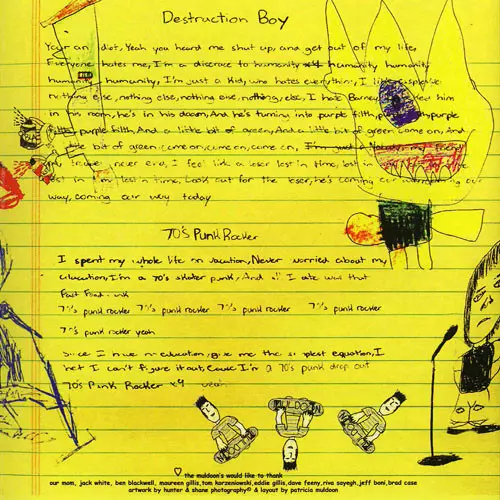 Destruction Boy
Your an idiot, Yeah you heard me shut up, and get out of my life,
Everyone hates me, I'm a disgrace to humanity x4 humanity humanity
humanity, humanity, I'm just a kid, who hates everything, I like
nothing else, nothing else, nothing else, nothing, else, I hate Barney, him
in his room, he's in his doom, And he's turning into purple filth, purple
purple filth, And a little bit of green, And a little bit of green come on, And
little bit of green come on, come on, come on, I'm just
never end, I feel like a loser lost in time, lost in
lost in time, Look out for the loser, he's coming our our
way, coming our way today
70's Punk Rocker
I spent my whole life on vacation, Never worried about my
education, I'm a 70's skater punk, And all I ate was that
Fast Food
70's punk rocker 70's punk rocker 70's punk rocker 70's punk rocker
70's punk rocker yeah
Since I have no education, give me the simplest equation, I
bet I can't figure it out, Cause I'm a 70's punk drop out
70's Punk Rocker x4 yeah
MULDOON
the muldoon's would like to thank
our mom, jack white, ben blackwell, maureen gillis, tom korzeniowski, eddie gillis, dave feeny, riva sayegh, jeff boni, brad case
artwork by hunter & shane photography© & layout by patricia muldoon